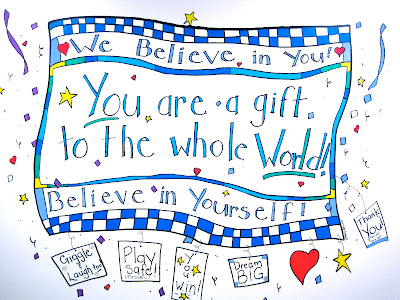 We Believe in You!
You are a gift
to the whole World!
Believe in Yourself!
Giggle
Laugh
Play
Safe!
You
Win!
Dream
BIG
Thank
You!